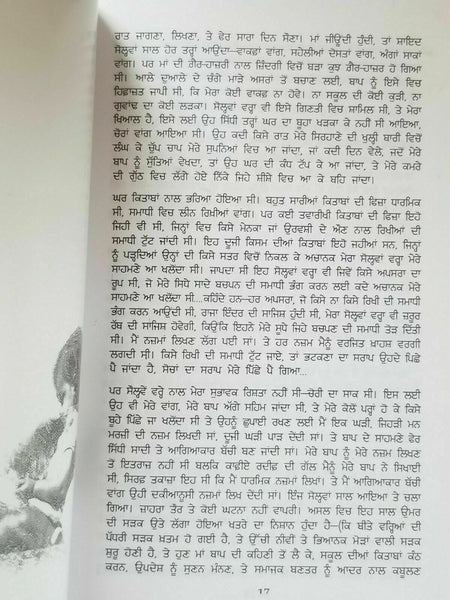 ਰਾਤ ਜਾਗਣਾ, ਲਿਖਣਾ, ਤੇ ਫੇਰ ਸਾਰਾ ਦਿਨ ਸੌਣਾ। ਮਾਂ ਜੀਊਂਦੀ ਹੁੰਦੀ, ਤਾਂ ਸ਼ਾਇਦ
ਸੋਲ੍ਹਵਾਂ ਸਾਲ ਹੋਰ ਤਰ੍ਹਾਂ ਆਉਂਦਾ—ਵਾਕਫ਼ਾਂ ਵਾਂਗ, ਸਹੇਲੀਆਂ ਦੋਸਤਾਂ ਵਾਂਗ, ਅੰਗਾਂ ਸਾਕਾਂ
ਵਾਂਗ। ਪਰ ਮਾਂ ਦੀ ਗ਼ੈਰ-ਹਾਜ਼ਰੀ ਨਾਲ ਜ਼ਿੰਦਗੀ ਵਿਚੋਂ ਬੜਾ ਕੁਝ ਗ਼ੈਰ-ਹਾਜ਼ਰ ਹੋ ਗਿਆ
ਸੀ। ਆਲੇ ਦੁਆਲੇ ਦੇ ਚੰਗੇ ਮਾੜੇ ਅਸਰਾਂ ਤੋਂ ਬਚਾਣ ਲਈ, ਬਾਪ ਨੂੰ ਇਸੇ ਵਿਚ
ਹਿਫ਼ਾਜ਼ਤ ਜਾਪੀ ਸੀ, ਕਿ ਮੇਰਾ ਕੋਈ ਵਾਕਫ਼ ਨਾ ਹੋਵੇ। ਨਾ ਸਕੂਲ ਦੀ ਕੋਈ ਕੁੜੀ, ਨਾ
ਗੁਵਾਂਢ ਦਾ ਕੋਈ ਲੜਕਾ। ਸੋਲ੍ਹਵਾਂ ਵਰ੍ਹਾ ਵੀ ਇਸੇ ਗਿਣਤੀ ਵਿਚ ਸ਼ਾਮਿਲ ਸੀ, ਤੇ ਮੇਰਾ
ਖ਼ਿਆਲ ਹੈ, ਇਸੇ ਲਈ ਉਹ ਸਿੱਧੀ ਤਰ੍ਹਾਂ ਘਰ ਦਾ ਬੂਹਾ ਖੜਕਾ ਕੇ ਨਹੀਂ ਸੀ ਆਇਆ,
ਚੋਰਾਂ ਵਾਂਗ ਆਇਆ ਸੀ। ਉਹ ਕਦੀ ਕਿਸੇ ਰਾਤ ਮੇਰੇ ਸਿਰਹਾਣੇ ਦੀ ਖੁਲ੍ਹੀ ਬਾਰੀ ਵਿਚੋਂ
ਲੰਘ ਕੇ ਚੁੱਪ ਚਾਪ ਮੇਰੇ ਸੁਪਨਿਆਂ ਵਿਚ ਆ ਜਾਂਦਾ, ਜਾਂ ਕਦੀ ਦਿਨ ਵੇਲੇ, ਜਦੋਂ ਮੇਰੇ
ਬਾਪ ਨੂੰ ਸੁੱਤਿਆਂ ਵੇਖਦਾ, ਤਾਂ ਉਹ ਘਰ ਦੀ ਕੰਧ ਟੱਪ ਕੇ ਆ ਜਾਂਦਾ, ਤੇ ਮੇਰੇ ਕਮਰੇ
ਦੀ ਗੁੱਠ ਵਿਚ ਲੱਗੇ ਹੋਏ ਨਿੱਕੇ ਜਿਹੇ ਸ਼ੀਸ਼ੇ ਵਿਚ ਆ ਕੇ ਬਹਿ ਜਾਂਦਾ।
ਘਰ ਕਿਤਾਬਾਂ ਨਾਲ ਭਰਿਆ ਹੋਇਆ ਸੀ। ਬਹੁਤ ਸਾਰੀਆਂ ਕਿਤਾਬਾਂ ਦੀ ਫ਼ਿਜ਼ਾ ਧਾਰਮਿਕ
ਸੀ, ਸਮਾਧੀ ਵਿਚ ਲੀਨ ਰਿਖੀਆਂ ਵਾਂਗ। ਪਰ ਕਈ ਤਵਾਰੀਖ਼ੀ ਕਿਤਾਬਾਂ ਦੀ ਫ਼ਿਜ਼ਾ ਇਹੋ
ਜਿਹੀ ਵੀ ਸੀ, ਜਿਨ੍ਹਾਂ ਵਿਚ ਕਿਸੇ ਮੇਨਕਾ ਜਾਂ ਉਰਵਸ਼ੀ ਦੇ ਔਣ ਨਾਲ ਰਿਖੀਆਂ ਦੀ
ਸਮਾਧੀ ਟੁੱਟ ਜਾਂਦੀ ਸੀ। ਇਹ ਦੂਜੀ ਕਿਸਮ ਦੀਆਂ ਕਿਤਾਬਾਂ ਇਹੋ ਜਹੀਆਂ ਸਨ, ਜਿਨ੍ਹਾਂ
ਨੂੰ ਪੜ੍ਹਦਿਆਂ ਉਨ੍ਹਾਂ ਦੀ ਕਿਸੇ ਸਤਰ ਵਿਚੋਂ ਨਿਕਲ ਕੇ ਅਚਾਨਕ ਮੇਰਾ ਸੋਲ੍ਹਵਾਂ ਵਰ੍ਹਾ ਮੇਰੇ
ਸਾਹਮਣੇ ਆ ਖਲੋਂਦਾ ਸੀ। ਜਾਪਦਾ ਸੀ ਇਹ ਸੋਲ੍ਹਵਾਂ ਵਰ੍ਹਾ ਵੀ ਜਿਵੇਂ ਕਿਸੇ ਅਪਸਰਾ ਦਾ
ਰੂਪ ਸੀ, ਜੋ ਮੇਰੇ ਸਿਧੇ ਸਾਦੇ ਬਚਪਨ ਦੀ ਸਮਾਧੀ ਭੰਗ ਕਰਨ ਲਈ ਕਦੇ ਅਚਾਨਕ ਮੇਰੇ
ਸਾਹਮਣੇ ਆ ਖਲੋਂਦਾ ਸੀ...ਕਹਿੰਦੇ ਹਨ—ਹਰ ਅਪਸਰਾ, ਜੋ ਕਿਸੇ ਨਾ ਕਿਸੇ ਰਿਖੀ ਦੀ ਸਮਾਧੀ
ਭੰਗ ਕਰਨ ਆਉਂਦੀ ਸੀ, ਰਾਜਾ ਇੰਦਰ ਦੀ ਸਾਜ਼ਿਸ਼ ਹੁੰਦੀ ਸੀ, ਮੇਰਾ ਸੋਲ੍ਹਵਾਂ ਵਰ੍ਹਾ ਵੀ ਜ਼ਰੂਰ
ਰੱਬ ਦੀ ਸਾਜ਼ਿਸ਼ ਹੋਵੇਗੀ, ਕਿਉਂਕਿ ਇਹਨੇ ਮੇਰੇ ਸੂਧੇ ਜਿਹੇ ਬਚਪਣ ਦੀ ਸਮਾਧੀ ਤੋੜ ਦਿੱਤੀ
ਸੀ। ਮੈਂ ਨਜ਼ਮਾਂ ਲਿਖਣ ਲੱਗ ਪਈ ਸਾਂ। ਤੇ ਹਰ ਨਜ਼ਮ ਮੈਨੂੰ ਵਰਜਿਤ ਖ਼ਾਹਸ਼ ਵਰਗੀ
ਲਗਦੀ ਸੀ। ਕਿਸੇ ਰਿਖੀ ਦੀ ਸਮਾਧੀ ਟੁੱਟ ਜਾਏ, ਤਾਂ ਭਟਕਣਾ ਦਾ ਸਰਾਪ ਉਹਦੇ ਪਿੱਛੇ
ਪੈ ਜਾਂਦਾ ਹੈ, ਸੋਚਾਂ ਦਾ ਸਰਾਪ ਮੇਰੇ ਪਿੱਛੇ ਪੈ ਗਿਆ...
ਪਰ ਸੋਲ੍ਹਵੇਂ ਵਰ੍ਹੇ ਨਾਲ ਮੇਰਾ ਸੁਭਾਵਕ ਰਿਸ਼ਤਾ ਨਹੀਂ ਸੀ—ਚੋਰੀ ਦਾ ਸਾਕ ਸੀ। ਇਸ ਲਈ
ਉਹ ਵੀ ਮੇਰੇ ਵਾਂਗ, ਮੇਰੇ ਬਾਪ ਅੱਗੇ ਸਹਿਮ ਜਾਂਦਾ ਸੀ, ਤੇ ਮੇਰੇ ਕੋਲੋਂ ਪਰ੍ਹਾਂ ਹੋ ਕੇ ਕਿਸੇ
ਬੂਹੇ ਪਿੱਛੇ ਜਾ ਖਲੋਂਦਾ ਸੀ ਤੇ ਉਹਨੂੰ ਛੁਪਾਈ ਰਖਣ ਲਈ ਮੈਂ ਇਕ ਘੜੀ, ਜਿਹੜੀ ਮਨ
ਮਰਜ਼ੀ ਦੀ ਨਜ਼ਮ ਲਿਖਦੀ ਸਾਂ, ਦੂਜੀ ਘੜੀ ਪਾੜ ਦੇਂਦੀ ਸਾਂ। ਤੇ ਬਾਪ ਦੇ ਸਾਹਮਣੇ ਫੇਰ
ਸਿੱਧੀ ਸਾਦੀ ਤੇ ਆਗਿਆਕਾਰ ਬੱਚੀ ਬਣ ਜਾਂਦੀ ਸਾਂ। ਮੇਰੇ ਬਾਪ ਨੂੰ ਮੇਰੇ ਨਜ਼ਮ ਲਿਖਣ
ਤੋਂ ਇਤਰਾਜ਼ ਨਹੀਂ ਸੀ ਬਲਕਿ ਕਾਫ਼ੀਏ ਰਦੀਫ਼ ਦੀ ਗੱਲ ਮੈਨੂੰ ਮੇਰੇ ਬਾਪ ਨੇ ਸਿਖਾਈ
ਸੀ, ਸਿਰਫ਼ ਤਕਾਜ਼ਾ ਇਹ ਸੀ ਕਿ ਮੈਂ ਧਾਰਮਿਕ ਨਜ਼ਮਾਂ ਲਿਖਾਂ। ਤੇ ਮੈਂ ਆਗਿਆਕਾਰ ਬੱਚੀ
ਵਾਂਗ ਉਹੀ ਦਕੀਆਨੂਸੀ ਨਜ਼ਮਾਂ ਲਿਖ ਦੇਂਦੀ ਸਾਂ। ਇੰਜ ਸੋਲ੍ਹਵਾਂ ਸਾਲ ਆਇਆ ਤੇ ਚਲਾ
ਗਿਆ। ਜ਼ਾਹਰਾ ਤੌਰ ਤੇ ਕੋਈ ਘਟਨਾ ਨਹੀਂ ਵਾਪਰੀ। ਅਸਲ ਵਿਚ ਇਹ ਸਾਲ ਉਮਰ
ਦੀ ਸੜਕ ਉਤੇ ਲੱਗਾ ਹੋਇਆ ਖ਼ਤਰੇ ਦਾ ਨਿਸ਼ਾਨ ਹੁੰਦਾ ਹੈ—(ਕਿ ਬੀਤੇ ਵਰ੍ਹਿਆਂ ਦੀ
ਪੱਧਰੀ ਸੜਕ ਖ਼ਤਮ ਹੋ ਗਈ ਹੈ, ਤੇ ਉੱਚੀ ਨੀਵੀਂ ਤੇ ਭਿਆਨਕ ਮੋੜਾਂ ਵਾਲੀ ਸੜਕ
ਸ਼ੁਰੂ ਹੋਣੀ ਹੈ, ਤੇ ਹੁਣ ਮਾਂ ਬਾਪ ਦੀ ਕਹਿਣੀ ਤੋਂ ਲੈ ਕੇ, ਸਕੂਲ ਦੀਆਂ ਕਿਤਾਬਾਂ ਕੰਠ
ਕਰਨ, ਉਪਦੇਸ਼ ਨੂੰ ਸੁਣਨ ਮੰਨਣ, ਤੇ ਸਮਾਜਕ ਬਣਤਰ ਨੂੰ ਆਦਰ ਨਾਲ ਕਬੂਲਣ
17